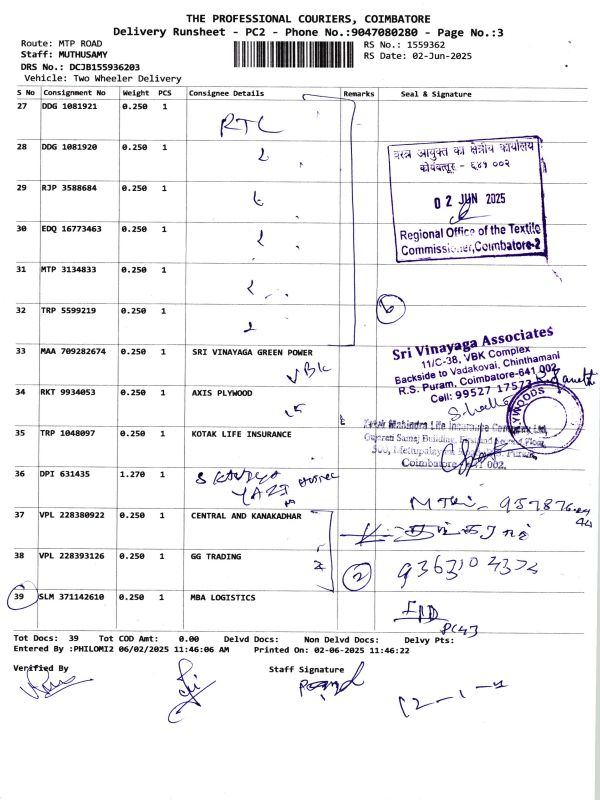 THE PROFESSIONAL COURIERS, COIMBATORE
Delivery Runsheet - PC2 - Phone No.:9047080280 - Page No.:3
Route: MTP ROAD
RS No.: 1559362
Staff: MUTHUSAMY
RS Date: 02-Jun-2025
DRS No.: DCJB155936203
Vehicle: Two Wheeler Delivery
S No Consignment No Weight PCS Consignee Details Remarks Seal & Signature
27 DDG 1081921 0.250 1
RTC
28 DDG 1081920 0.250 1
29 RJP 3588684 0.250 1
30 EDQ 16773463 0.250 1
31 MTP 3134833 0.250 1
32 TRP 5599219 0.250 1
वस्त्र आयुक्त का क्षेत्रीय कार्यालय
कोयम्बत्तूर - ६४१ ००२
02 JUN 2025
Regional Office of the Textile
Commissioner, Coimbatore-2
6
33 MAA 709282674 0.250 1 SRI VINAYAGA GREEN POWER
VBK
Sri Vinayaga Associates
11/C-38, VBK Complex
Backside to Vadakovai, Chinthamani
R.S. Puram, Coimbatore-641 002
Cell: 99527 17573
34 RKT 9934053 0.250 1 AXIS PLYWOOD
PLYWOODS
35 TRP 1048097 0.250 1 KOTAK LIFE INSURANCE
Kotak Mahindra Life Insurance Company Ltd,
Gujarati Samaj Building, First and Second Floor,
Coimbatore 641 002.
36 DPI 631435 1.270 1
37 VPL 228380922 0.250 1 CENTRAL AND KANAKADHAR
38 VPL 228393126 0.250 1 GG TRADING
2
2
9363104324
39 SLM 371142610 0.250 1 MBA LOGISTICS
Tot Docs: 39 Tot COD Amt: 0.00 Delvd Docs: Non Delvd Docs: Delvy Pts:
Entered By :PHILOMI2 06/02/2025 11:46:06 AM Printed On: 02-06-2025 11:46:22
Verified By
Staff Signature